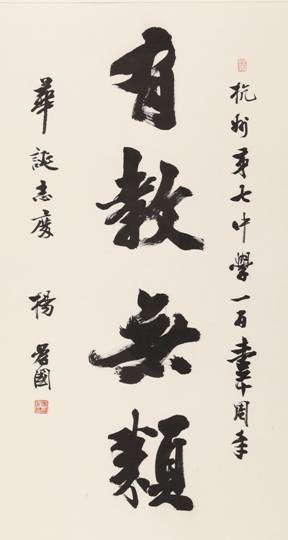 杭州第七中學一百壹十周年
有教無類
華誕志慶 楊 國